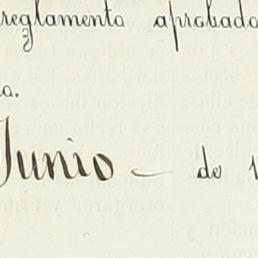 reglamento aprobado
o.
Junio — de 1